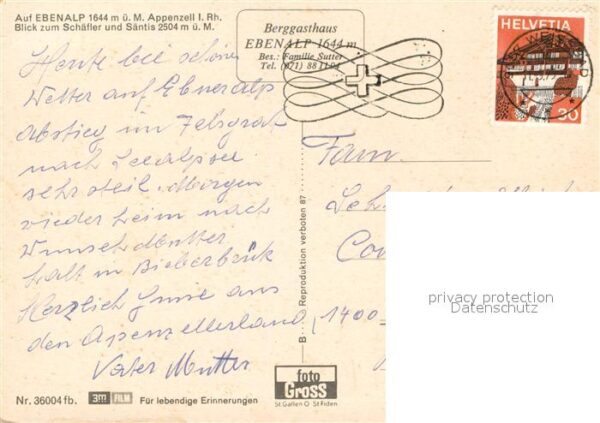 Auf EBENALP 1644 m ü. M. Appenzell I. Rh.
Blick zum Schäfler und Säntis 2504 m ü. M.
Berggasthaus
EBENALP 1644 m
Bes.: Familie Sutter
Tel. (071) 88 11 94
HELVETIA
30
Heute bei schönem
Wetter auf Ebenalp
Abstieg im Felsgrat
nach Seealpsee
sehr steil. Morgen
wieder heim nach
Wunsch Mutter
halt in Bieberbrük
Herzlich Grüsse aus
den Apenzellerland
Vater Mutter
Fam.
1400
B Reproduktion verboten 87
privacy protection
Datenschutz
foto
Gross
St.Gallen O St.Fiden
Nr. 36004 fb. 3m FILM Für lebendige Erinnerungen